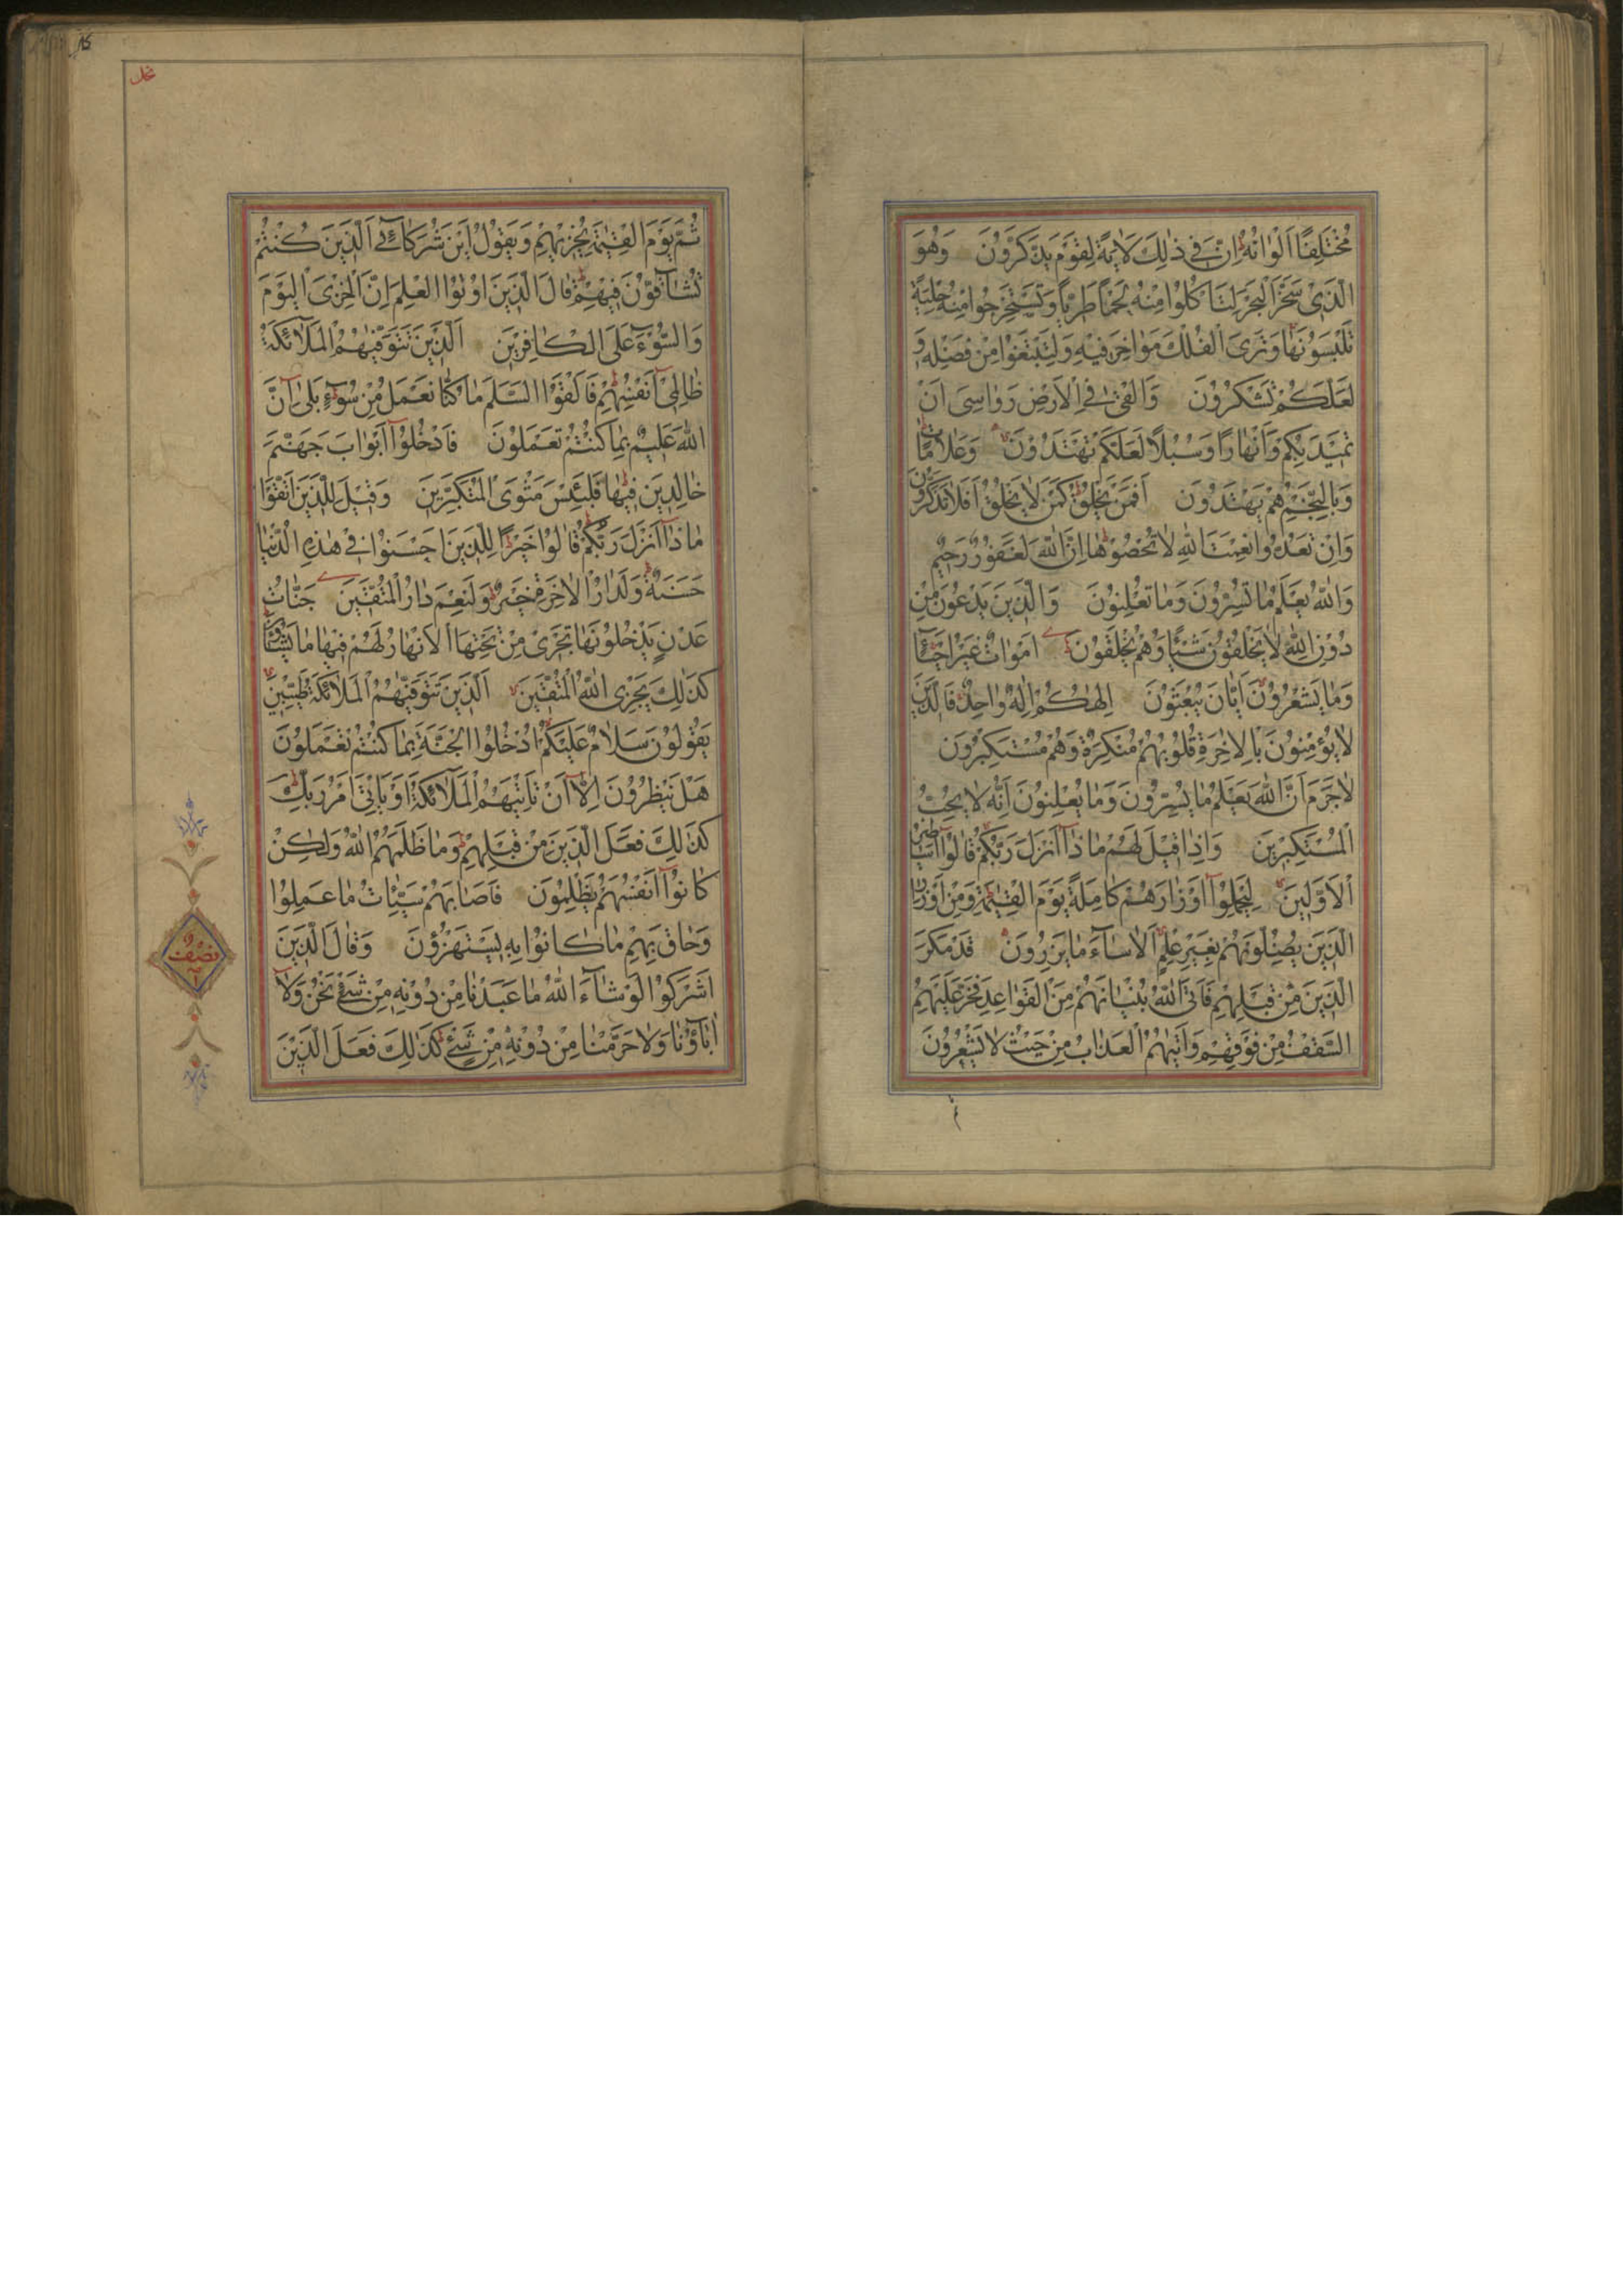 مُخْتَلِفًا اَلْوَانُهُ اِنَّ فِي ذٰلِكَ لَاٰيَةً لِقَوْمٍ يَذَّكَّرُونَ وَهُوَ
الَّذِي سَخَّرَ الْبَحْرَ لِتَاْكُلُوا مِنْهُ لَحْمًا طَرِيًّا وَتَسْتَخْرِجُوا مِنْهُ حِلْيَةً
تَلْبَسُونَهَا وَتَرَى الْفُلْكَ مَوَاخِرَ فِيهِ وَلِتَبْتَغُوا مِنْ فَضْلِهِ وَ
لَعَلَّكُمْ تَشْكُرُونَ وَاَلْقٰى فِي الْاَرْضِ رَوَاسِيَ اَنْ
تَمِيدَ بِكُمْ وَاَنْهَارًا وَسُبُلًا لَعَلَّكُمْ تَهْتَدُونَ وَعَلَامَاتٍ
وَبِالنَّجْمِ هُمْ يَهْتَدُونَ اَفَمَنْ يَخْلُقُ كَمَنْ لَا يَخْلُقُ اَفَلَا تَذَكَّرُونَ
وَاِنْ تَعُدُّوا نِعْمَتَ اللّٰهِ لَا تُحْصُوهَا اِنَّ اللّٰهَ لَغَفُورٌ رَحِيمٌ
وَاللّٰهُ يَعْلَمُ مَا تُسِرُّونَ وَمَا تُعْلِنُونَ وَالَّذِينَ يَدْعُونَ مِنْ
دُونِ اللّٰهِ لَا يَخْلُقُونَ شَيْئًا وَهُمْ يُخْلَقُونَ اَمْوَاتٌ غَيْرُ اَحْيَاءٍ
وَمَا يَشْعُرُونَ اَيَّانَ يُبْعَثُونَ اِلٰهُكُمْ اِلٰهٌ وَاحِدٌ فَالَّذِينَ
لَا يُؤْمِنُونَ بِالْاٰخِرَةِ قُلُوبُهُمْ مُنْكِرَةٌ وَهُمْ مُسْتَكْبِرُونَ
لَا جَرَمَ اَنَّ اللّٰهَ يَعْلَمُ مَا يُسِرُّونَ وَمَا يُعْلِنُونَ اِنَّهُ لَا يُحِبُّ
الْمُسْتَكْبِرِينَ وَاِذَا قِيلَ لَهُمْ مَاذَا اَنْزَلَ رَبُّكُمْ قَالُوا اَسَاطِيرُ
الْاَوَّلِينَ لِيَحْمِلُوا اَوْزَارَهُمْ كَامِلَةً يَوْمَ الْقِيٰمَةِ وَمِنْ اَوْزَارِ
الَّذِينَ يُضِلُّونَهُمْ بِغَيْرِ عِلْمٍ اَلَا سَاءَ مَا يَزِرُونَ قَدْ مَكَرَ
الَّذِينَ مِنْ قَبْلِهِمْ فَاَتَى اللّٰهُ بُنْيَانَهُمْ مِنَ الْقَوَاعِدِ فَخَرَّ عَلَيْهِمُ
السَّقْفُ مِنْ فَوْقِهِمْ وَاَتٰيهُمُ الْعَذَابُ مِنْ حَيْثُ لَا يَشْعُرُونَ
نحل
ثُمَّ يَوْمَ الْقِيٰمَةِ يُخْزِيهِمْ وَيَقُولُ اَيْنَ شُرَكَائِيَ الَّذِينَ كُنْتُمْ
تُشَاقُّونَ فِيهِمْ قَالَ الَّذِينَ اُوتُوا الْعِلْمَ اِنَّ الْخِزْيَ الْيَوْمَ
وَالسُّوءَ عَلَى الْكَافِرِينَ اَلَّذِينَ تَتَوَفّٰيهُمُ الْمَلٰئِكَةُ
ظَالِمِي اَنْفُسِهِمْ فَاَلْقَوُا السَّلَمَ مَا كُنَّا نَعْمَلُ مِنْ سُوءٍ بَلٰى اِنَّ
اللّٰهَ عَلِيمٌ بِمَا كُنْتُمْ تَعْمَلُونَ فَادْخُلُوا اَبْوَابَ جَهَنَّمَ
خَالِدِينَ فِيهَا فَلَبِئْسَ مَثْوَى الْمُتَكَبِّرِينَ وَقِيلَ لِلَّذِينَ اتَّقَوْا
مَاذَا اَنْزَلَ رَبُّكُمْ قَالُوا خَيْرًا لِلَّذِينَ اَحْسَنُوا فِي هٰذِهِ الدُّنْيَا
حَسَنَةٌ وَلَدَارُ الْاٰخِرَةِ خَيْرٌ وَلَنِعْمَ دَارُ الْمُتَّقِينَ جَنَّاتُ
عَدْنٍ يَدْخُلُونَهَا تَجْرِي مِنْ تَحْتِهَا الْاَنْهَارُ لَهُمْ فِيهَا مَا يَشَاؤُنَ
كَذٰلِكَ يَجْزِي اللّٰهُ الْمُتَّقِينَ اَلَّذِينَ تَتَوَفّٰيهُمُ الْمَلٰئِكَةُ طَيِّبِينَ
يَقُولُونَ سَلَامٌ عَلَيْكُمُ ادْخُلُوا الْجَنَّةَ بِمَا كُنْتُمْ تَعْمَلُونَ
هَلْ يَنْظُرُونَ اِلَّا اَنْ تَاْتِيَهُمُ الْمَلٰئِكَةُ اَوْ يَاْتِيَ اَمْرُ رَبِّكَ
كَذٰلِكَ فَعَلَ الَّذِينَ مِنْ قَبْلِهِمْ وَمَا ظَلَمَهُمُ اللّٰهُ وَلٰكِنْ
كَانُوا اَنْفُسَهُمْ يَظْلِمُونَ فَاَصَابَهُمْ سَيِّئَاتُ مَا عَمِلُوا
وَحَاقَ بِهِمْ مَا كَانُوا بِهِ يَسْتَهْزِؤُنَ وَقَالَ الَّذِينَ
اَشْرَكُوا لَوْ شَاءَ اللّٰهُ مَا عَبَدْنَا مِنْ دُونِهِ مِنْ شَيْءٍ نَحْنُ وَلَا
اٰبَاؤُنَا وَلَا حَرَّمْنَا مِنْ دُونِهِ مِنْ شَيْءٍ كَذٰلِكَ فَعَلَ الَّذِينَ
نصف